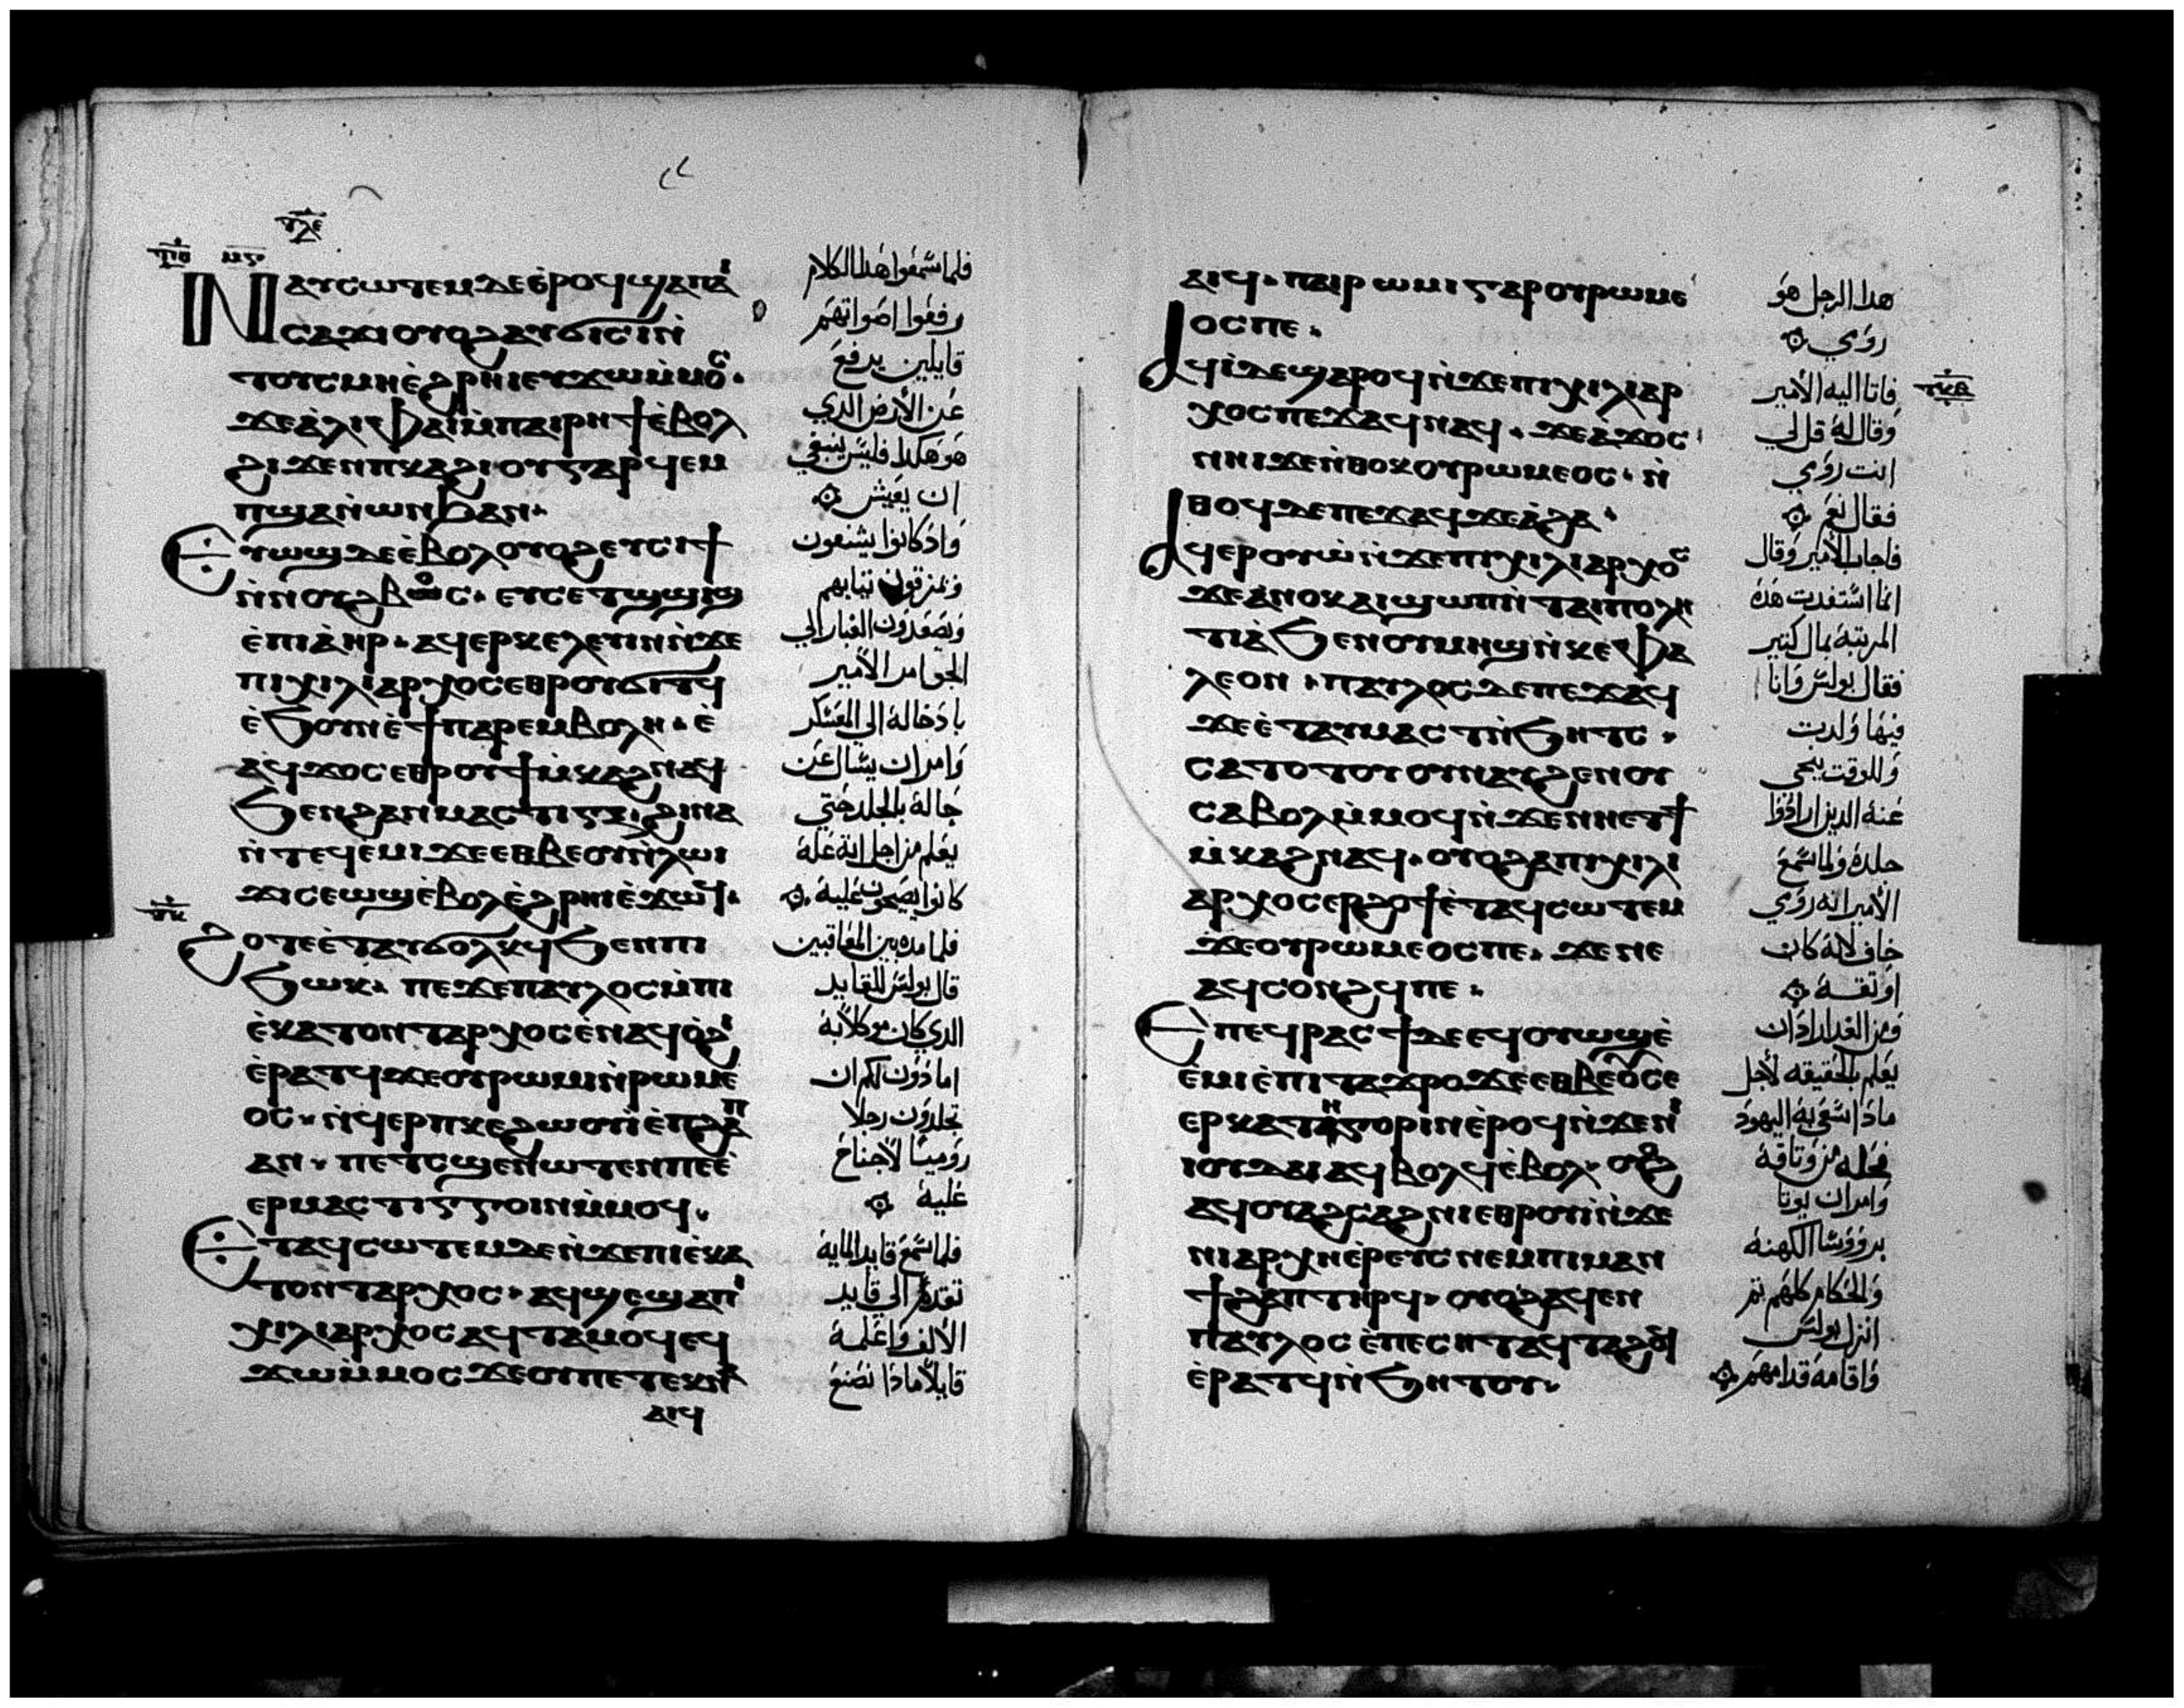 ⲧⲗⲉ
ⲛⲁⲩⲥⲱⲧⲉⲙ ⲇⲉ ⲉ̀ⲣⲟϥ ϣⲁ ⲡⲁⲓ
ⲥⲁϫⲓ ⲟⲩⲟϩ ⲁⲩϭⲓⲥⲓ ⲛ̀
ⲧⲟⲩⲥⲙⲏ ⲉ̀ϩⲣⲏⲓ ⲉⲩϫⲱ ⲙ̀ⲙⲟⲥ.
ϫⲉ ⲁ̀ⲗⲓ ⲫⲁⲓ ⲙ̀ⲡⲁⲓⲣⲏϯ ⲉ̀ⲃⲟⲗ
ϩⲓϫⲉⲛ ⲡⲕⲁϩⲓ ⲟⲩ ⲅⲁⲣ ϥⲉⲙ
ⲡϣⲁ ⲛ̀ⲱⲛϧ ⲁⲛ.
ⲉⲩⲱϣ ⲇⲉ ⲉ̀ⲃⲟⲗ ⲟⲩⲟϩ ⲉⲩⲥⲓϯ
ⲛ̀ⲛⲟⲩϩⲃⲱⲥ. ⲉⲩⲥⲉⲧ ϣⲱⲓϣ
ⲉ̀ⲡⲓⲁ̀ⲏⲣ. ⲁϥⲉⲣⲕⲉⲗⲉⲩⲓⲛ ⲛ̀ϫⲉ
ⲡⲓⲭⲓⲗⲓⲁⲣⲭⲟⲥ ⲉⲑⲣⲟⲩϭⲓⲧϥ
ⲉ̀ϧⲟⲩⲛ ⲉ̀ϯⲡⲁⲣⲉⲙⲃⲟⲗⲏ. ⲉ̀
ⲁϥϫⲟⲥ ⲉⲑⲣⲟⲩϯⲙ̀ⲕⲁϩ ⲛⲁϥ
ϧⲉⲛ ϩⲁⲛⲙⲁⲥⲧⲓⲅⲝ ϩⲓⲛⲁ
ⲛ̀ⲧⲉϥⲉⲙⲓ ϫⲉ ⲉⲑⲃⲉ ⲟⲩ ⲛ̀ⲗⲱⲓ
ϫⲓ ⲥⲉⲱϣ ⲉ̀ⲃⲟⲗ ⲉ̀ϩⲣⲏⲓ ⲉ̀ϫⲱϥ.
ϩⲟⲧⲉ ⲉ̀ⲧⲁⲩϭⲟⲗⲕϥ ϧⲉⲛ ⲡⲓ
ϧⲱⲕ. ⲡⲉϫⲉ ⲡⲁⲩⲗⲟⲥ ⲙ̀ⲡⲓ
ⲉ̀ⲕⲁⲧⲟⲛⲧⲁⲣⲭⲟⲥ ⲉ̀ⲛⲁϥⲟ̀ϩⲓ
ⲉ̀ⲣⲁⲧϥ ϫⲉ ⲟⲩⲣⲱⲙⲓ ⲛ̀ⲣⲱⲙⲉ
ⲟⲥ. ⲛ̀ϥⲉⲣⲡⲕⲉϩⲱⲟⲩⲓ ⲉ̀ⲡϩⲁⲡ
ⲁⲛ. ⲡⲉⲧⲥϣⲉ ⲛⲱⲧⲉⲛ ⲡⲉ ⲉ̀
ⲉⲣⲙⲁⲥⲧⲓⲅⲅⲟⲓⲛ ⲙ̀ⲙⲟϥ.
ⲉⲧⲁϥⲥⲱⲧⲉⲙ ⲇⲉ ⲛ̀ϫⲉ ⲡⲓⲉ̀ⲕⲁ
ⲧⲟⲛⲧⲁⲣⲭⲟⲥ. ⲁϥϣⲉ ϣⲁ ⲡⲓ
ⲭⲓⲗⲓⲁⲣⲭⲟⲥ ⲁϥⲧⲁⲙⲟϥ ⲉϥ
ϫⲱ ⲙ̀ⲙⲟⲥ ϫⲉ ⲟⲩ ⲡⲉⲧⲉⲕⲛⲁ
ⲁⲓϥ
فلما سمعوا هذا الكلام
رفعوا اصواتهم
قايلين يرفع
عن الارض الدي
هو هكدا فليس ينبغي
ان يعيش
واد كانوا يشنعون
ويمزقون تيابهم
ويصعدون الغبار الي
الجو امر الامير
بادخاله الي المعسكر
وامر ان يسال عن
حاله بالجلد حتي
يعلم من اجل اية علة
كانوا يصيحون عليه
فلما مدو بين المعاقبين
قال بولس للقايد
الدي كان موكلا به
اما دون لكم ان
تجلدون رجلا
روميا لا جناح
عليه
فلما سمع قايد الماية
تقدم الي قايد
الالف واعلمه
قايلا مادا تصنع
ⲁⲓϥ. ⲡⲁⲓⲣⲱⲙⲓ ⲅⲁⲣ ⲟⲩⲣⲱⲙⲉ
ⲟⲥ ⲡⲉ.
ⲁϥⲓ̀ ⲇⲉ ϣⲁⲣⲟϥ ⲛ̀ϫⲉ ⲡⲓⲭⲓⲗⲓⲁⲣ
ⲭⲟⲥ ⲡⲉϫⲁϥ ⲛⲁϥ. ϫⲉ ⲁ̀ϫⲟⲥ
ⲛⲏⲓ ϫⲉ ⲛ̀ⲑⲟⲕ ⲟⲩⲣⲱⲙⲉⲟⲥ. ⲛ̀
ⲑⲟϥ ⲇⲉ ⲡⲉϫⲁϥ ϫⲉ ⲁ̀ϩⲁ.
ⲁϥⲉⲣⲟⲩⲱ̀ ⲛ̀ϫⲉ ⲡⲓⲭⲓⲗⲓⲁⲣⲭⲟⲥ
ϫⲉ ⲁⲛⲟⲕ ⲁⲓϣⲱⲡ ⲛ̀ⲧⲁⲓⲡⲟⲗⲏ
ⲧⲓⲁ̀ ϧⲉⲛ ⲟⲩⲙⲏϣ ⲛ̀ⲕⲉⲫⲁ
ⲗⲉⲟⲛ. ⲡⲁⲩⲗⲟⲥ ⲇⲉ ⲡⲉϫⲁϥ
ϫⲉ ⲉ̀ⲧⲁⲩⲙⲁⲥⲧ ⲛ̀ϧⲏⲧⲥ.
ⲥⲁⲧⲟⲧⲟⲩ ⲟⲩⲛ ⲁⲩϩⲉⲛⲟⲩ
ⲥⲁⲃⲟⲗ ⲙ̀ⲙⲟϥ ⲛ̀ϫⲉ ⲛⲏⲉⲧϯ
ⲙ̀ⲕⲁϩ ⲛⲁϥ. ⲟⲩⲟϩ ⲁ ⲡⲓⲭⲓⲗⲓ
ⲁⲣⲭⲟⲥ ⲉⲣϩⲟϯ ⲉ̀ⲧⲁϥⲥⲱⲧⲉⲙ
ϫⲉ ⲟⲩⲣⲱⲙⲉⲟⲥ ⲡⲉ. ϫⲉ ⲛⲉ
ⲁϥⲥⲟⲛϩϥ ⲡⲉ.
ⲉⲡⲉϥⲣⲁⲥϯ ⲇⲉ ⲉϥⲟⲩⲱϣ ⲉ̀
ⲉ̀ⲙⲓ ⲉ̀ⲡⲓⲧⲁϫⲣⲟ ϫⲉ ⲉⲑⲃⲉ ⲟⲩ ⲥⲉ
ⲉⲣⲕⲁⲧⲏⲅⲟⲣⲓⲛ ⲉ̀ⲣⲟϥ ⲛ̀ϫⲉ ⲛⲓ
ⲓⲟⲩⲇⲁⲓ ⲁϥⲃⲟⲗϥ ⲉ̀ⲃⲟⲗ. ⲟⲩⲟϩ
ⲁϥⲟⲩⲁϩⲥⲁϩⲛⲓ ⲉⲑⲣⲟⲩⲓ̀ ⲛ̀ϫⲉ
ⲛⲓⲁⲣⲭⲏⲉ̀ⲣⲉⲩⲥ ⲛⲉⲙ ⲡⲓⲙⲁⲛ
ϯϩⲁⲡ ⲧⲏⲣϥ. ⲟⲩⲟϩ ⲁϥⲉⲛ
ⲡⲁⲩⲗⲟⲥ ⲉ̀ⲡⲉⲥⲏⲧ ⲁϥⲧⲁϩⲟϥ
ⲉ̀ⲣⲁⲧϥ ⲛ̀ϧⲏⲧⲟⲩ.
هدا الرجل هو
روي
فاتا اليه الامير
وقال له قل لي
انت روي
فقال نعم
فاجاب الامير وقال
انما استفدت هده
المرتبة بمال كتير
فقال بولس وانا
فيها ولدت
وللوقت تنحي
عنه الدين ارادوا
جلده ولما سمع
الامير انه روي
خاف لانه كان
اوتقه
ومن الغد اراد ان
يعلم بالحقيقه لاجل
مادا سعي به اليهود
فحله من وتاقه
وامر ان يوتا
بروؤسا الكهنة
والحكام كلهم تم
انزل بولس
واقامه قدامهم